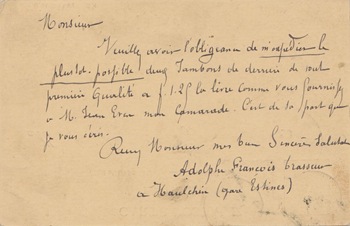 Monsieur
Veuillez avoir l'obligeance de m'expédier le
plustot possible deux Jambons de derrière de tout
première qualité à f 1.25 la livre comme vous fournissez
à M. Jean mon Camarade. C'est de sa part que
je vous écris.
Recevez Monsieur mes bien Sincères Salutat
Adolphe François brasseur
à Haulchin (gare Estinnes)